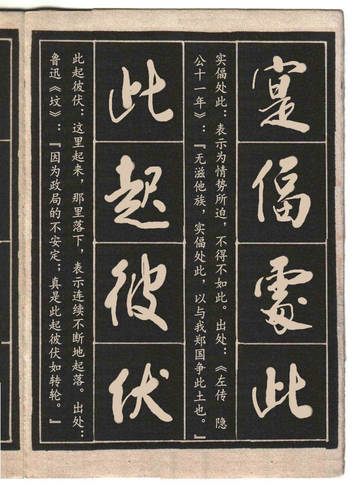 寔偪處此
实偪处此：表示为情势所迫，不得不如此。出处：《左传 隐
公十一年》：『无滋他族，实偪处此，以与我郑国争此土也。』
此起彼伏
此起彼伏：这里起来，那里落下，表示连续不断地起落。出处：
鲁迅《坟》：『因为政局的不安定；真是此起彼伏如转轮。』